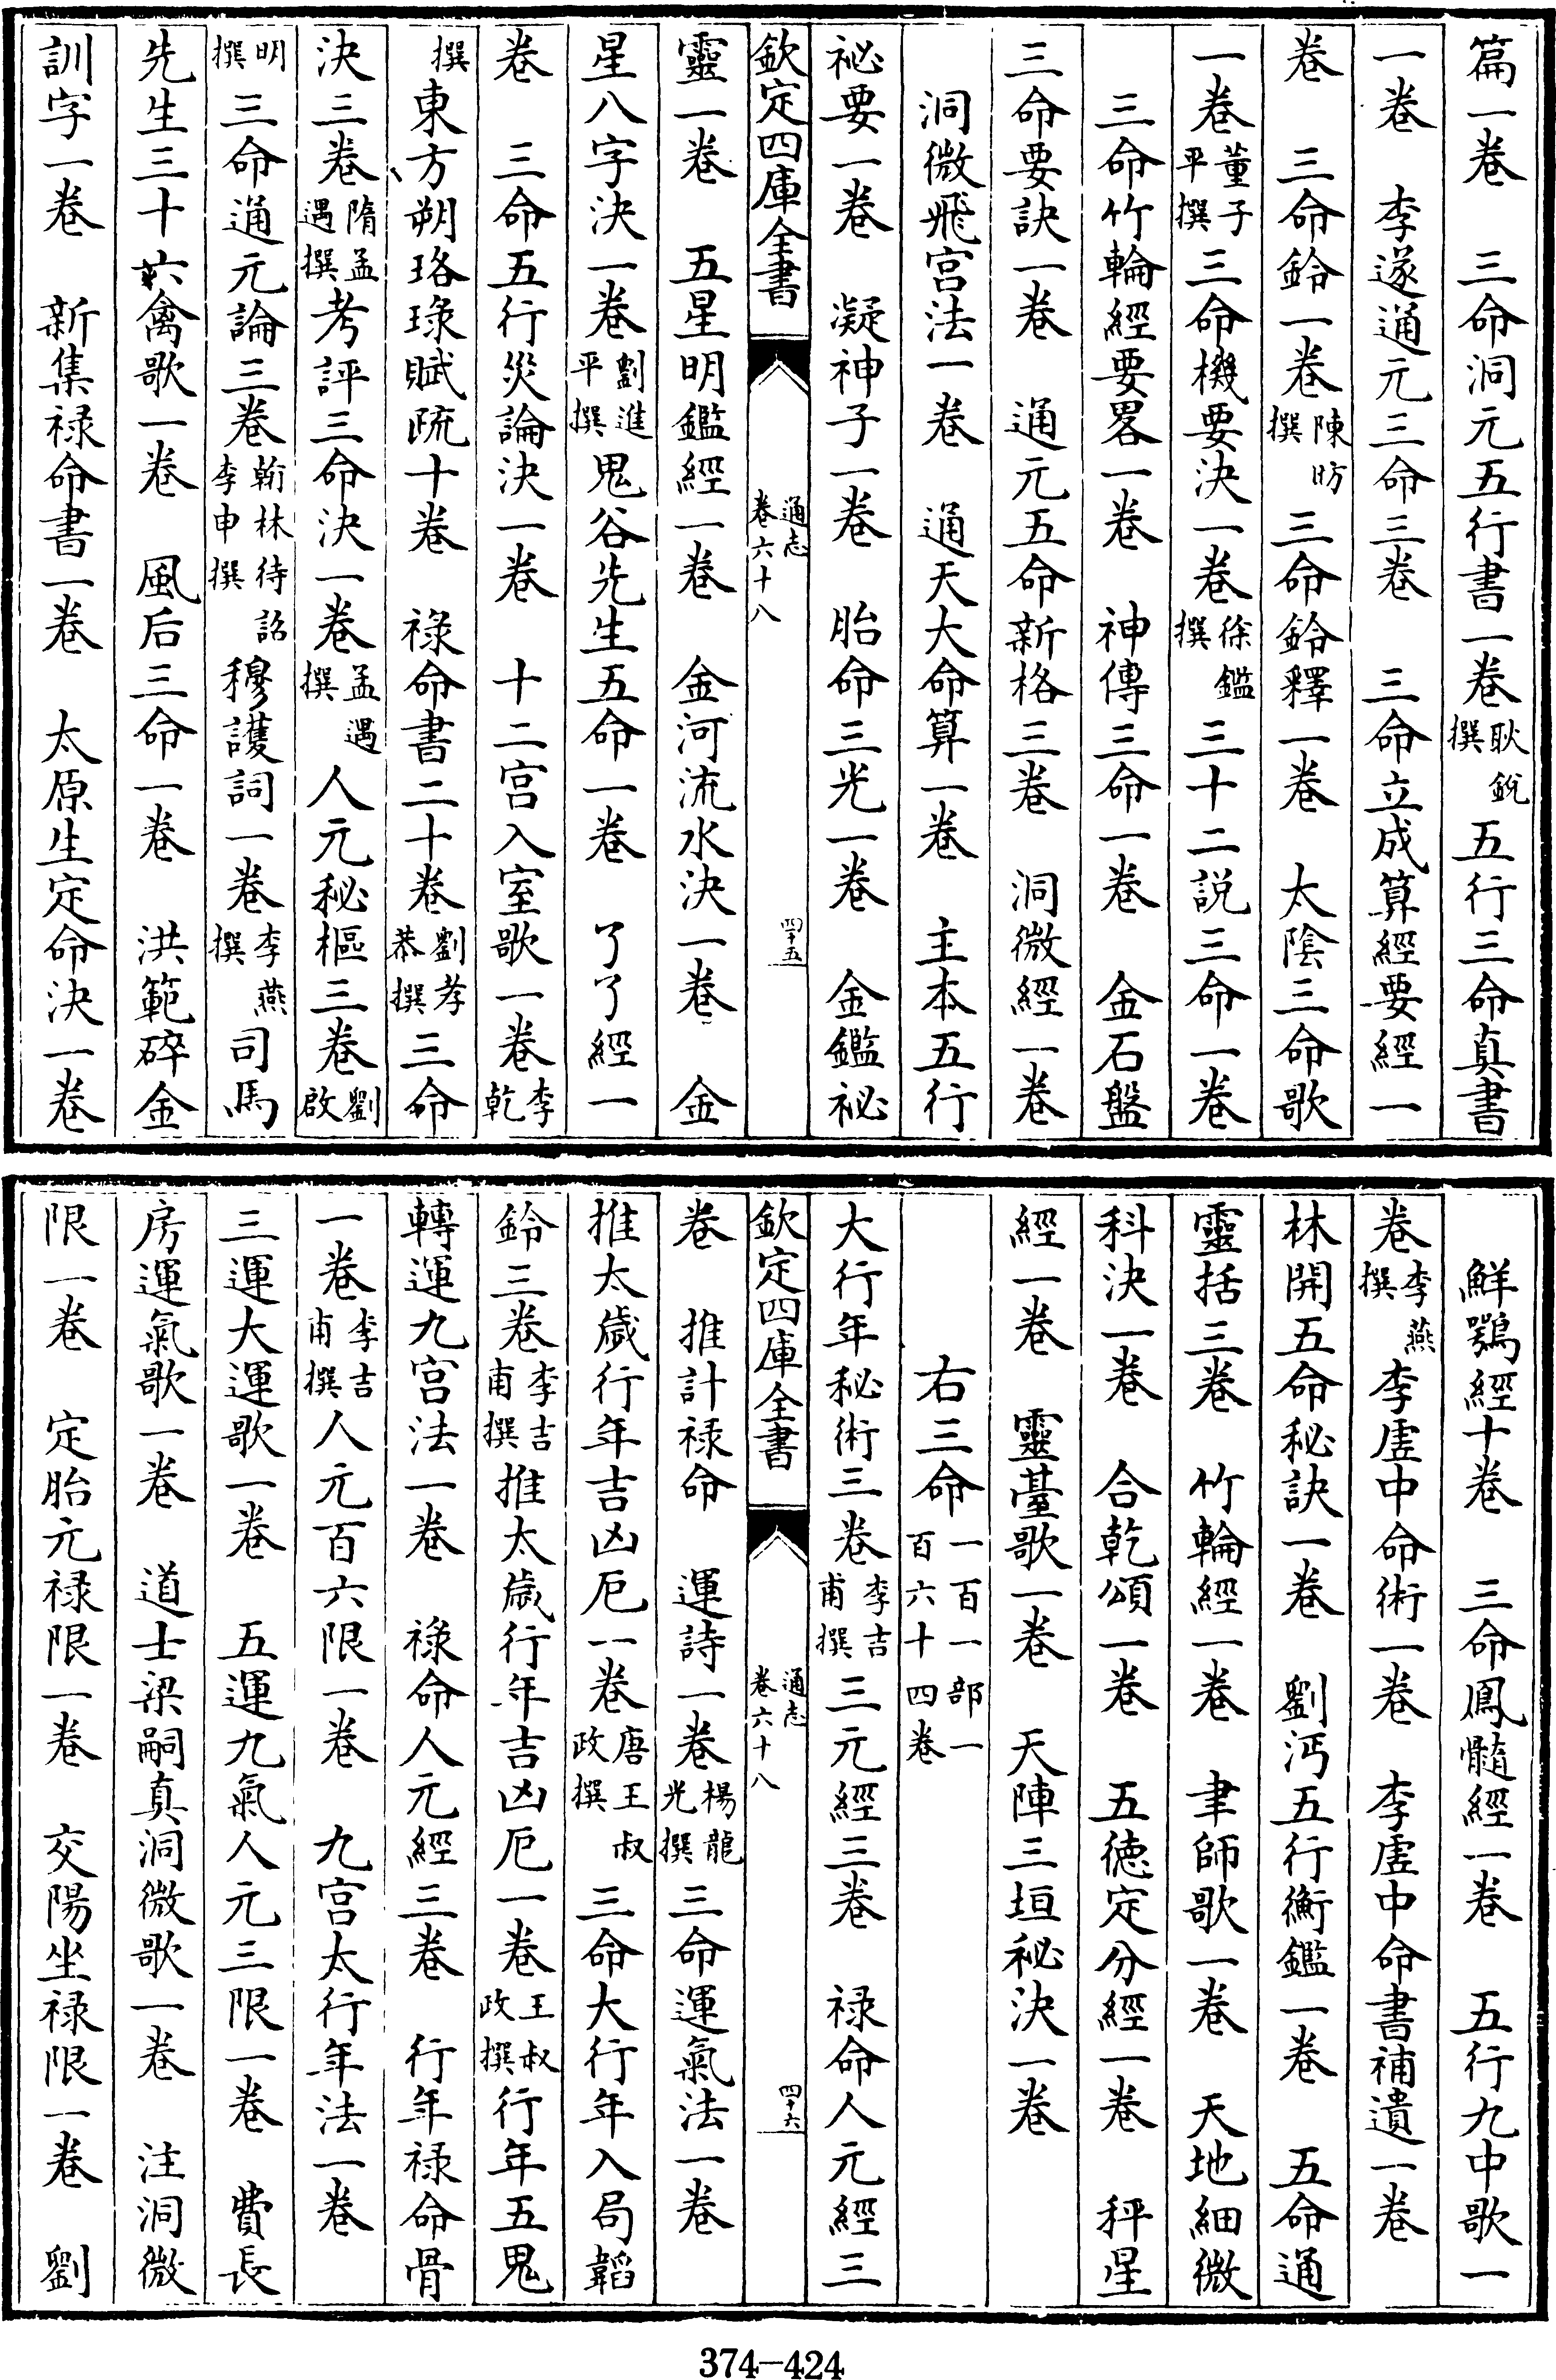 篇一卷　三命洞元五行書一卷耿鋭撰　五行三命真書
一卷　李遂通元三命三卷　三命立成算經要經一
卷　三命鈐一卷陳昉撰　三命鈐釋一卷　太陰三命歌
一卷董子平撰三命機要決一卷徐鑑撰三十二説三命一卷
三命竹輪經要畧一卷　神傳三命一卷　金石盤
三命要訣一卷　通元五命新格三卷　洞微經一卷
洞微飛宫法一卷　通天大命算一卷　主本五行
祕要一卷　凝神子一卷　胎命三光一卷　金鑑祕
欽定四庫全書　通志卷六十八　四十五
靈一卷　五星明鑑經一卷　金河流水決一卷　金
星八字決一卷劉進平撰鬼谷先生五命一卷　了了經一
卷　三命五行災論決一卷　十二宫入室歌一卷李乾
撰東方朔珞琭賦疏十卷　祿命書二十卷劉孝恭撰三命
決三卷隋孟遇撰考評三命決一卷孟遇撰　人元秘樞三卷劉啟
明撰三命通元論三卷翰林待詔李申撰　穆護詞一卷李燕撰司馬
先生三十六禽歌一卷　風后三命一卷　洪範碎金
訓字一卷　新集禄命書一卷　太原生定命決一卷
鮮鶚經十卷　三命鳳髓經一卷　五行九中歌一
卷李燕撰　李虛中命術一卷　李虛中命書補遺一卷
林開五命秘訣一卷　劉沔五行衡鑑一卷　五命通
靈括三卷　竹輪經一卷　聿師歌一卷　天地細微
科決一卷　合乾頌一卷　五徳定分經一卷　秤星
經一卷　靈臺歌一卷　天陣三垣秘決一卷
右三命一百一部一百六十四卷
大行年秘術三卷李吉甫撰三元經三卷　禄命人元經三
欽定四庫全書　通志卷六十八　四十六
卷　推計禄命　運詩一卷楊龍光撰三命運氣法一卷
推太歲行年吉凶厄一卷唐王叔政撰　三命大行年入局韜
鈐三卷李吉甫撰推太歲行年吉凶厄一卷王叔政撰行年五鬼
轉運九宫法一卷　祿命人元經三卷　行年禄命骨
一卷李吉甫撰人元百六限一卷　九宫太行年法一卷
三運大運歌一卷　五運九氣人元三限一卷　費長
房運氣歌一卷　道士梁嗣真洞微歌一卷　注洞微
限一卷　定胎元禄限一卷　交陽坐禄限一卷　劉
374-424